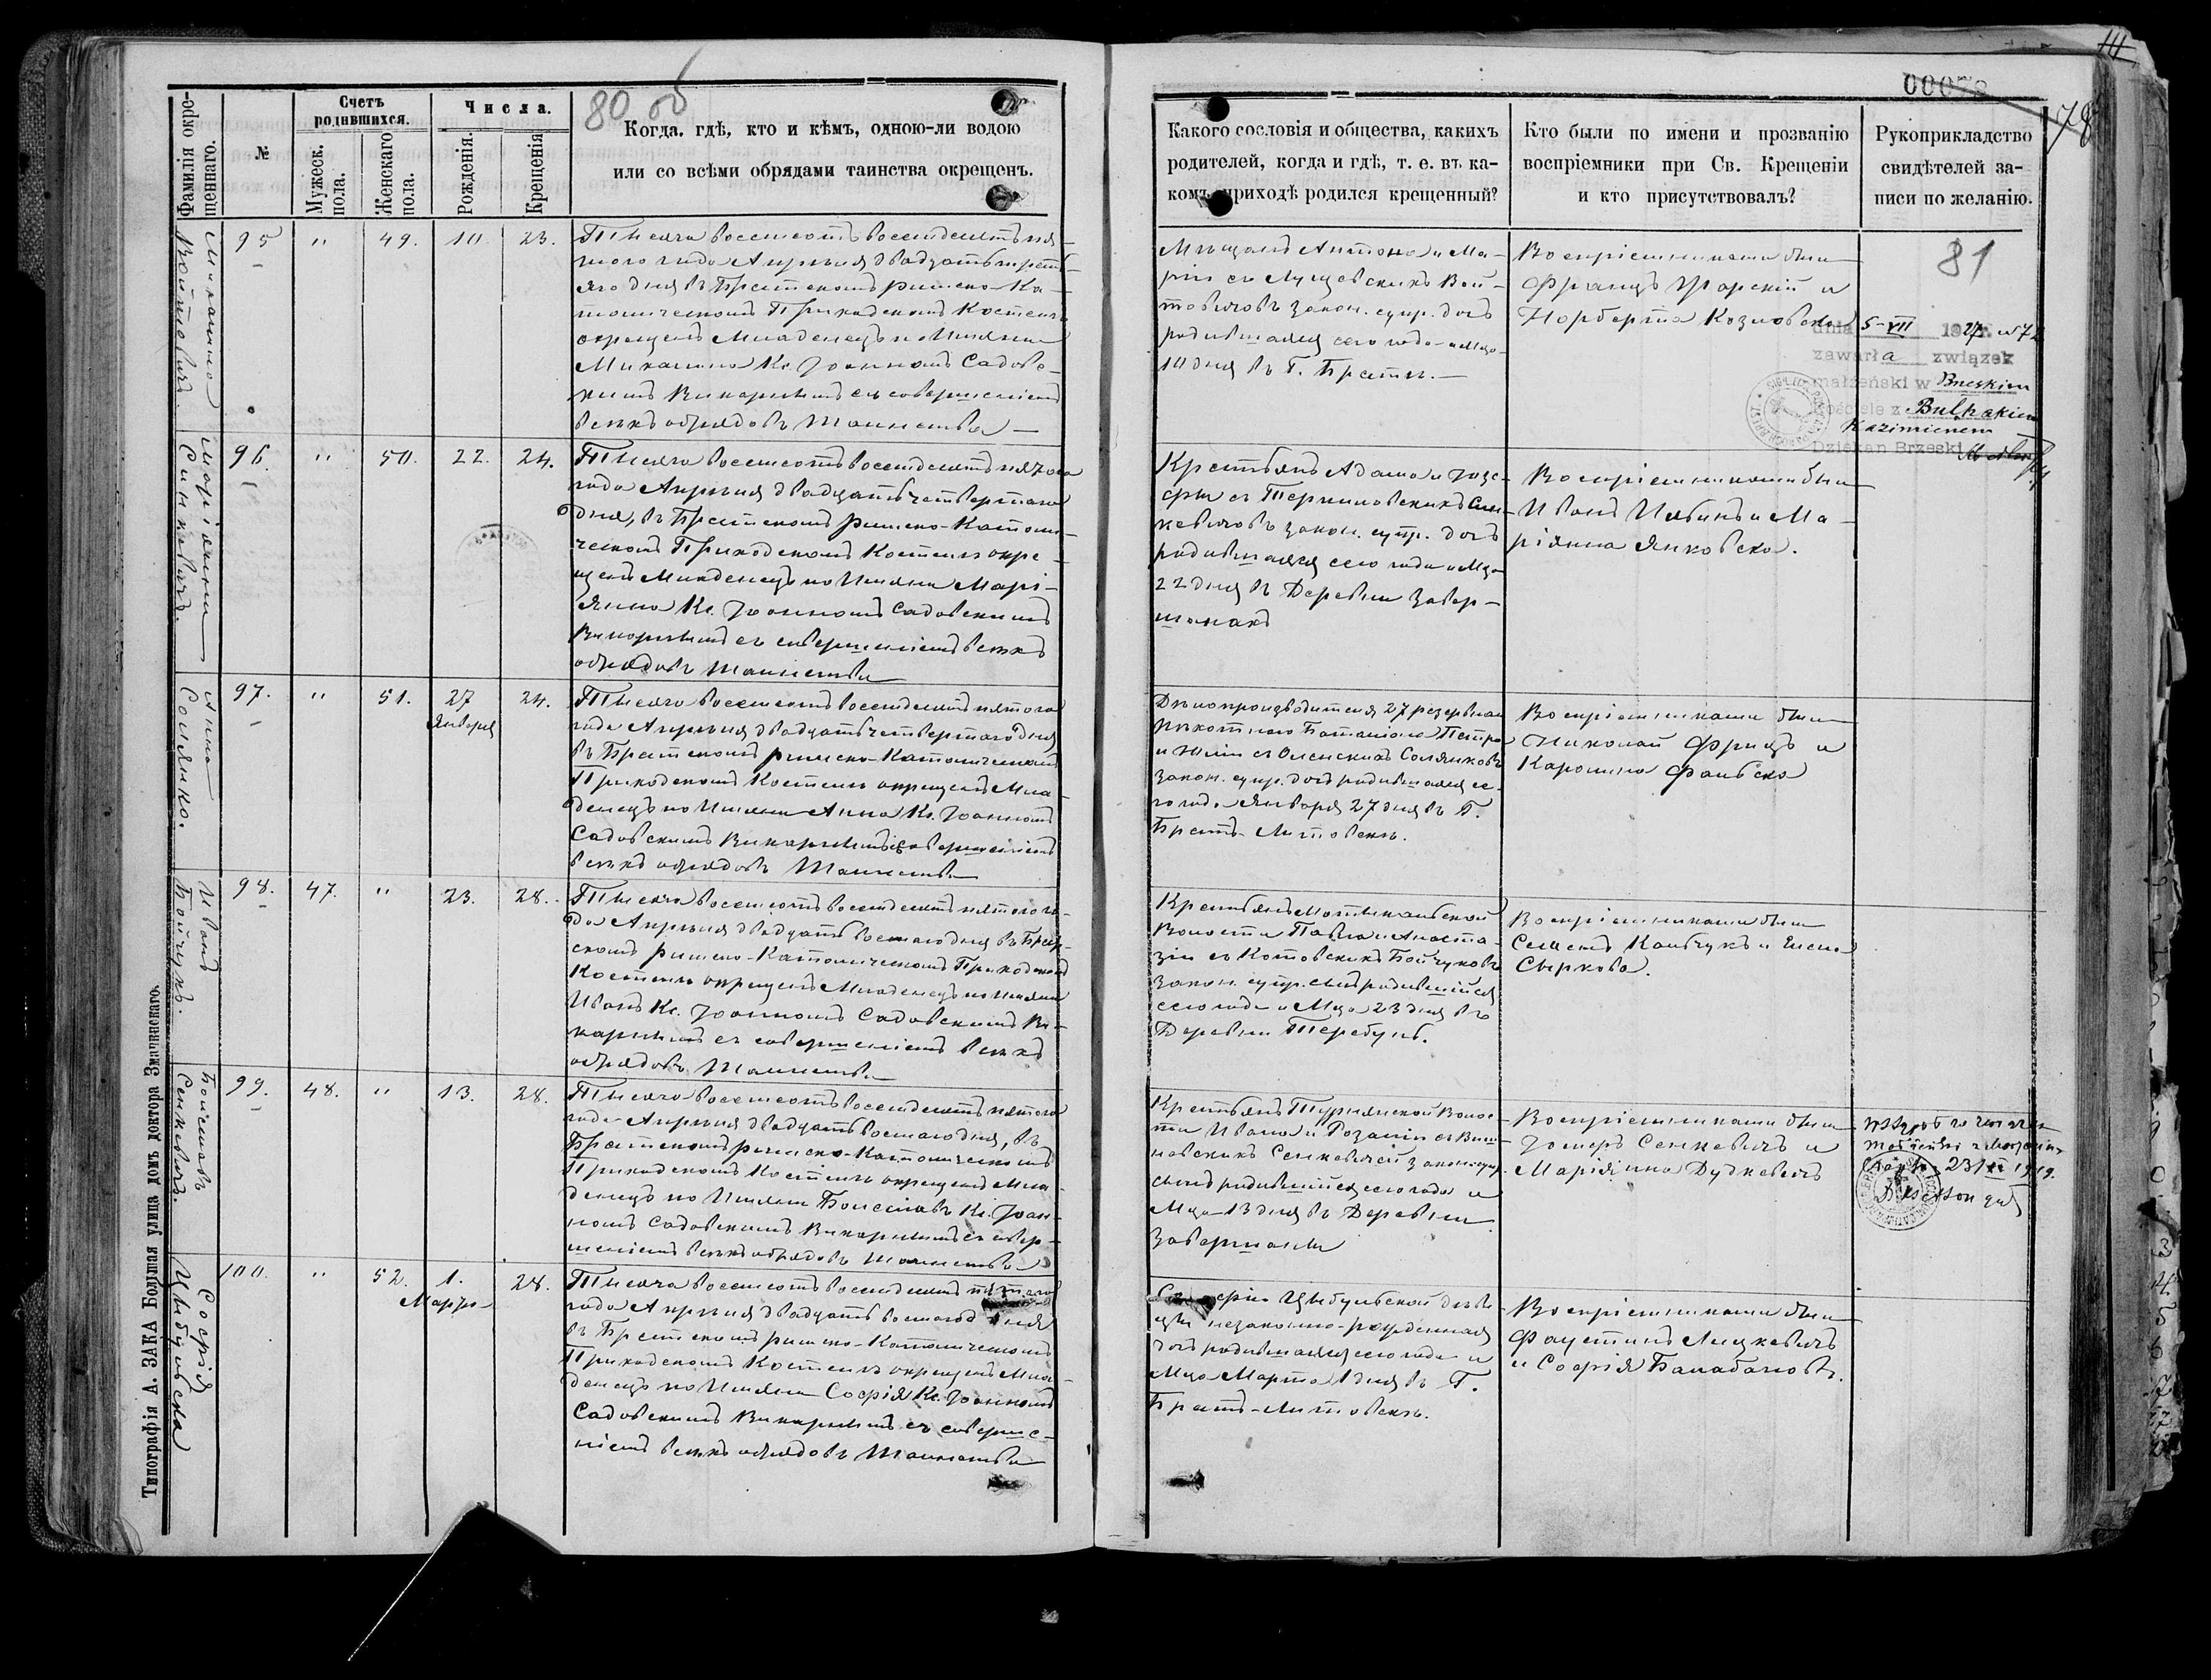 80 об
Фамилія окре-
щеннаго.
№
Счетъ
родившихся.
Мужеск.
пола.
Женскаго
пола.
Числа.
Рожденія.
Крещенія
Когда, гдѣ, кто и кѣмъ, одною-ли водою
или со всѣми обрядами таинства окрещенъ.
Михалина
Войтовичъ.
95
"
49.
10
23.
Тысяча восемьсотъ восемьдесятъ пя-
таго года Апрѣля двадцать треть-
яго дня въ Брестскомъ римско-Ка-
толическомъ Приходскомъ Костелѣ
окрещенъ Младенецъ по Имяни
Михалина Кс. Іоанномъ Садовс-
кимъ Викарнымъ съ совершеніемъ
всѣхъ обрядовъ Таинства
Маріянна
Синкевичъ.
96.
"
50.
22.
24.
Тысяча восемьсотъ восемьдесятъ пятого
года Апрѣля двадцать четвертаго
дня, въ Брестскомъ римско-Католи-
ческомъ Приходскомъ Костелѣ окре-
щенъ Младенецъ по Имяни Марі-
янна Кс. Іоанномъ Садовскимъ
Викарнымъ съ совершеніемъ всѣхъ
обрядовъ Таинства
Анна
Солянко.
97.
"
51.
27
Января
24.
Тысяча восемьсотъ восемьдесятъ пятого
года Апрѣля двадцать четвертаго дня
въ Брестскомъ римско-Католическомъ
Приходскомъ Костелѣ окрещенъ Мла-
денецъ по Имяни Анна Кс. Іоанномъ
Садовскимъ Викарнымъ совершеніемъ
всѣхъ обрядовъ Таинства
Иванъ
Бойчукъ.
98.
47.
"
23.
28.
Тысяча восемьсотъ восемьдесятъ пятого го-
да Апрѣля двадцать восьмаго дня въ Брест-
скомъ римско-Католическомъ Приходскомъ
Костелѣ окрещенъ Младенецъ по Имяни
Иванъ Кс. Іоанномъ Садовскимъ Ви-
карнымъ съ совершеніемъ всѣхъ
обрядовъ Таинства
Болеславъ
Сенкевичъ.
99.
48.
"
13.
28.
Тысяча восемьсотъ восемьдесятъ пятого
года Апрѣля двадцать восьмаго дня, въ
Брестскомъ римско-Католическомъ
Приходскомъ Костелѣ окрещенъ Мла-
денецъ по Имяни Болеславъ Кс. Іоан-
номъ Садовскимъ Викарнымъ съ совер-
шеніемъ всѣхъ обрядовъ Таинства
Софія
Цыбульска
100.
"
52.
1.
Марта
28.
Тысяча восемьсотъ восемьдесятъ пятаго
года Апрѣля двадцать восьмаго дня
въ Брестскомъ римско-Католическомъ
Приходскомъ Костелѣ окрещенъ Мла-
денецъ по Имяни Софія Кс. Іоанномъ
Садовскимъ Викарнымъ съ соверше-
ніемъ всѣхъ обрядовъ Таинства
Типографія А. ЗАКА Болшая улица домъ доктора Змачинскаго.
00078
78
Какого сословія и общества, какихъ
родителей, когда и гдѣ, т. е. въ ка-
комъ приходѣ родился крещенный?
Кто были по имени и прозванію
воспріемники при Св. Крещеніи
и кто присутствовалъ?
Рукоприкладство
свидѣтелей за-
писи по желанію.
81
Мѣщанъ Антона и Ма-
ріи съ Лущевскихъ Вой-
товичовъ закон. супр. дочь
родившаяся сего года и Мца
10 дня въ Г. Брестѣ.
Воспріемниками были
Францъ и
Норберта Козловска
dnia 5-VII 1927
zawarła związek
małżeński w Brzeskim
kościele z Bułhakiem
Kazimierzem
Dziekan Brzeski
Крестьянъ Адама и Іозе-
фы съ Терпиловскихъ Син-
кевичовъ закон. супр. дочь
родившаяся сего года и Мца
22 дня въ Деревни Завер-
шанахъ
Воспріемниками были
Иванъ и Ма-
ріянна Янковска.
Дѣлопроизводителя 27 резервнаго
пѣхотнаго Баталіона Петра
и Юліи съ Оленскихъ Солянковъ
закон. супр. дочь родившаяся се-
го года Января 27 дня въ Г.
Брестъ-Литовскѣ.
Воспріемниками были
Николай Фрицъ и
Каролина
Крестьянъ Мотыкальской
Волости Павла и Анаста-
зіи съ Котовскихъ Бойчуковъ
закон. супр. сынъ родившійся
сего года и Мца 23 дня въ
Деревни Теребунь.
Воспріемниками были
Семенъ Ковбчукъ и Елена
Сыркова.
Крестьянъ Турнянской Волос-
ти Ивана и Розаліи съ Виш-
новскихъ Сенкевичей закон. супр.
сынъ родившійся сего года и
Мца 13 дня въ Деревни
Завершаны
Воспріемниками были
Іозефъ Сенкевичъ и
Маріянна Дудкевичъ
1919.
Софіи Цыбульской дѣви-
цы незаконно-рожденная
дочь родившаяся сего года и
Мца Марта 1 дня въ Г.
Брестъ-Литовскѣ.
Воспріемниками были
Фаустинъ Лицкевичъ
и Софія Балабановъ.